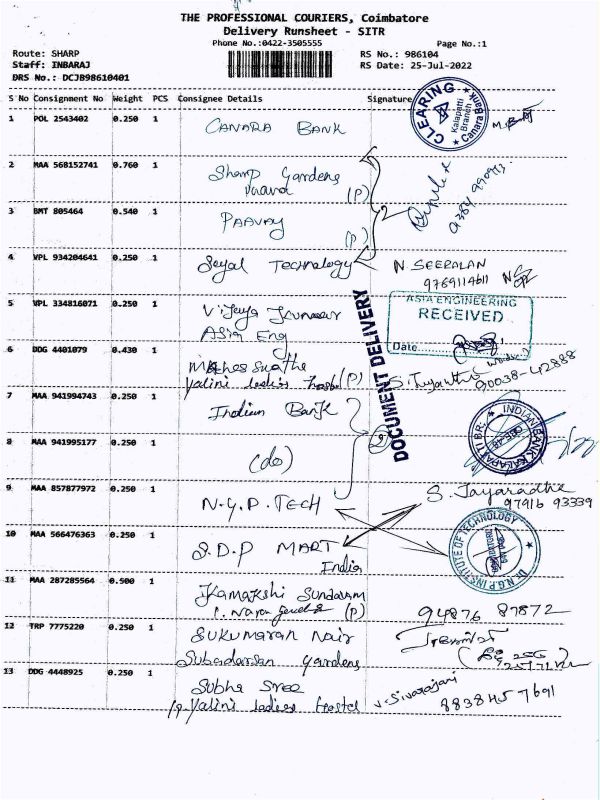 THE PROFESSIONAL COURIERS, Coimbatore
Delivery Runsheet - SITR
Phone No.:0422-3505555 Page No.:1
Route: SHARP RS No.: 986104
Staff: INBARAJ RS Date: 25-Jul-2022
DRS No.: DCJB98610401
S No Consignment No Weight PCS Consignee Details Signature
CLEARING
Kalapatti Branch
Canara Bank
1 POL 2543402 0.250 1 CANARA BANK
2 MAA 568152741 0.760 1 Sharp Gardens
(P)
3 BMT 805464 0.540 1 PAAVAY
(P)
4 VPL 934204641 0.250 1 Seyal Technology N. SEERALAN
9769114611
5 VPL 334816071 0.250 1 Vijaya Kumar
Asia Eng
ASIA ENGINEERING
RECEIVED
Date
DOCUMENT DELIVERY
6 DDG 4401079 0.430 1
Yalini ladies hostel (P)
90038-42888
7 MAA 941994743 1 Indian Bank
INDIAN BANK KALAPATTI BR.
8 MAA 941995177 0.250 1 (do)
9 MAA 857877972 0.250 1 N.G.P. TECH S. Jayaradha
97916 93339
10 MAA 566476363 0.250 1 S.D.P MART
India
Dr. N.G.P INSTITUTE OF TECHNOLOGY
11 MAA 287285564 0.500 1 Kamakshi Sundaram
(P) 94876 87872
12 TRP 7775220 0.250 1 Sukumaran Nair
Subadarsan Gardens
13 DDG 4448925 0.250 1 Subha Sree
Yalini ladies hostel V. Sivaranjani
8838457691